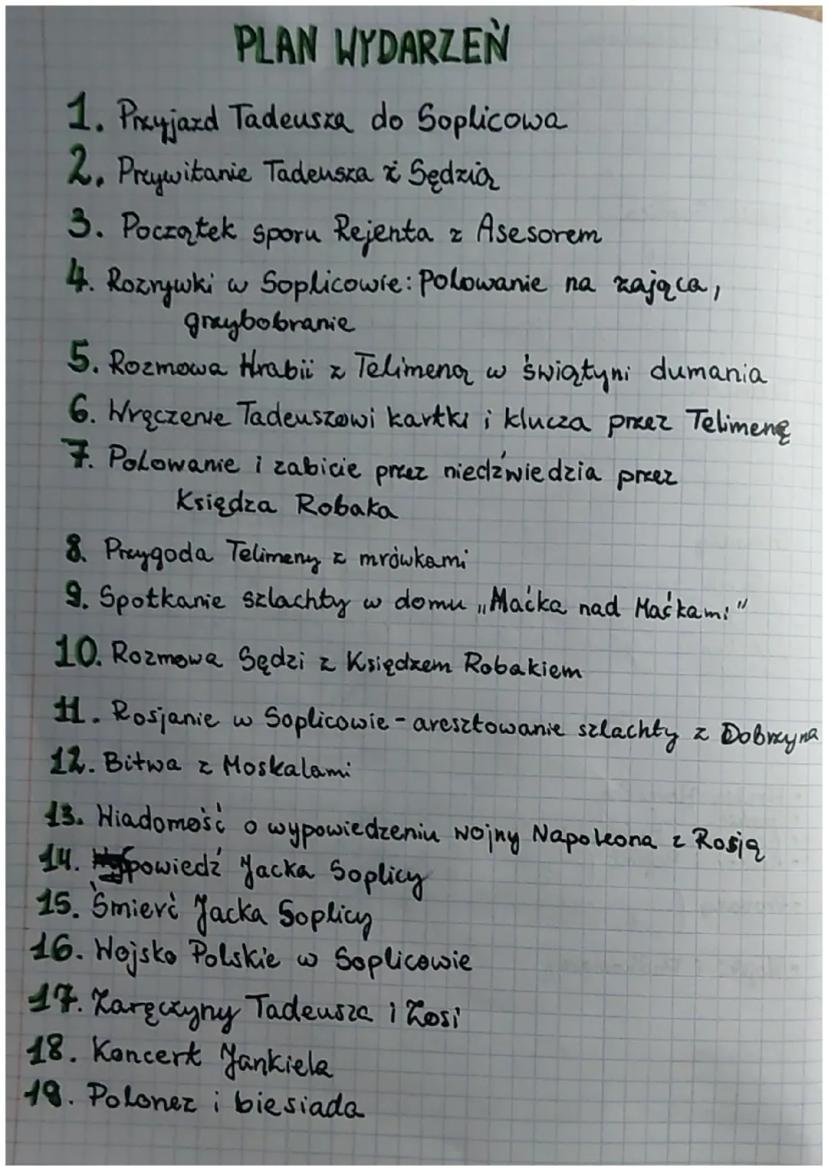 PLAN WYDARZEŃ
1. Przyjazd Tadeusza do Soplicowa
2. Przywitanie Tadeusza z Sędzią
3. Początek sporu Rejenta z Asesorem
4. Rozrywki w Soplicowie: Polowanie na zająca,
grzybobranie
5. Rozmowa Hrabii z Telimeną w świątyni dumania
6. Wręczenie Tadeuszowi kartki i klucza przez Telimenę
7. Polowanie i zabicie przez niedźwiedzia przez
Księdza Robaka
8. Przygoda Telimeny z mrówkami
9. Spotkanie szlachty w domu „Maćka nad Maćkami"
10. Rozmowa Sędzi z Księdzem Robakiem
11. Rosjanie w Soplicowie - aresztowanie szlachty z Dobrzyna
12. Bitwa z Moskalami
13. Wiadomość o wypowiedzeniu wojny Napoleona z Rosją
14. Spowiedź Jacka Soplicy
15. Śmierć Jacka Soplicy
16. Wojsko Polskie w Soplicowie
17. Zaręczyny Tadeusza i Zosi
18. Koncert Jankiela
19. Polonez i biesiada